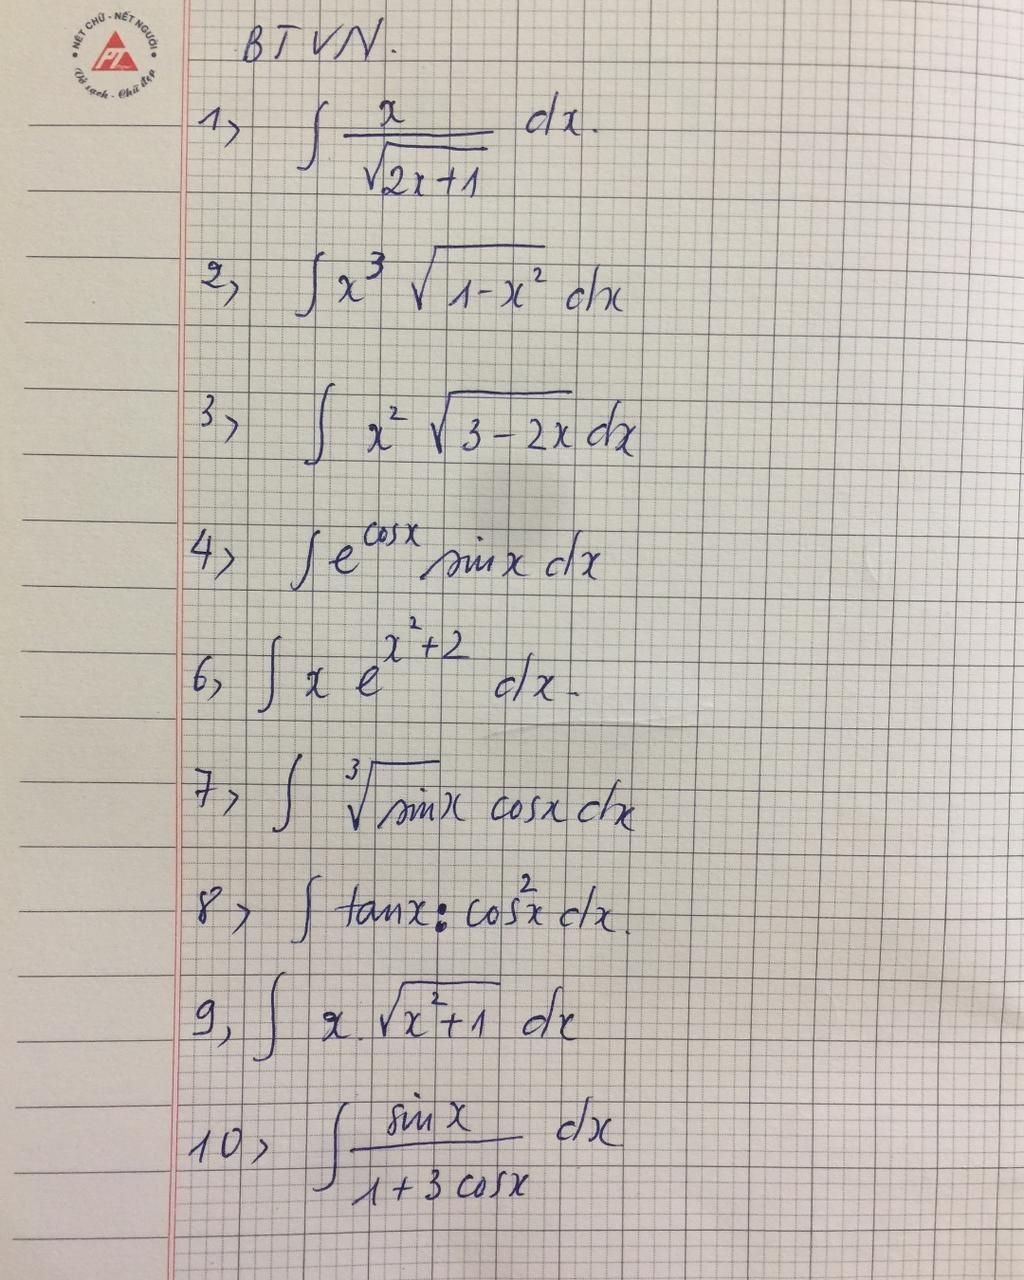 NÉT CHỮ - NẾT NGƯỜI
PT
Vở sạch - Chữ đẹp
BTVN.
1> ∫ x/√(2x+1) dx.
2, ∫ x³ √(1-x²) dx
3> ∫ x² √(3-2x) dx
4> ∫ e^(cosx) sinx dx
6, ∫ x e^(x²+2) dx.
7> ∫ ³√(sinx) cosx dx
8> ∫ tanx : cos²x dx.
9, ∫ x. √(x²+1) dx
10> ∫ sinx/(1+3cosx) dx